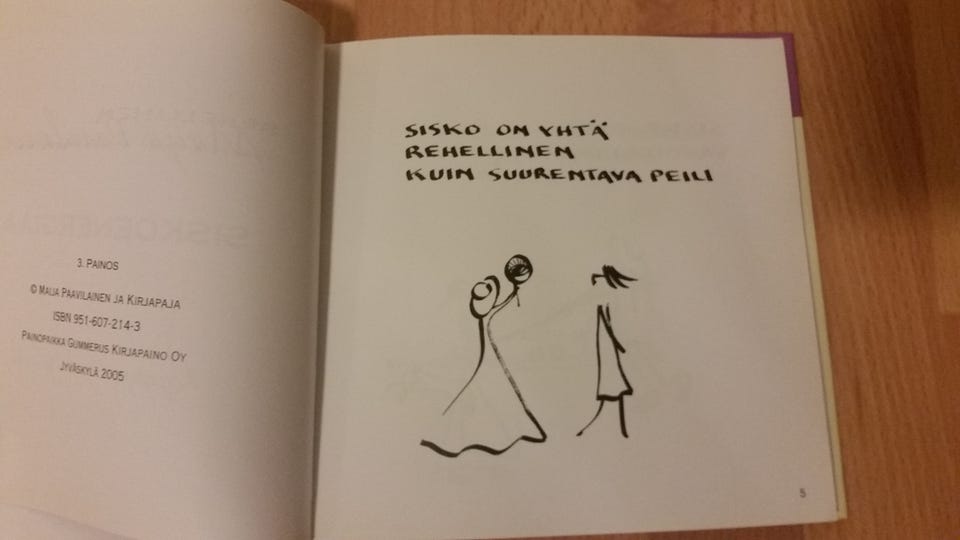 3. PAINOS
© MAIJA PAAVILAINEN JA KIRJAPAJA
ISBN 951-607-214-3
PAINOPAIKKA GUMMERUS KIRJAPAINO OY
JYVÄSKYLÄ 2005
SISKO ON YHTÄ
REHELLINEN
KUIN SUURENTAVA PEILI
5